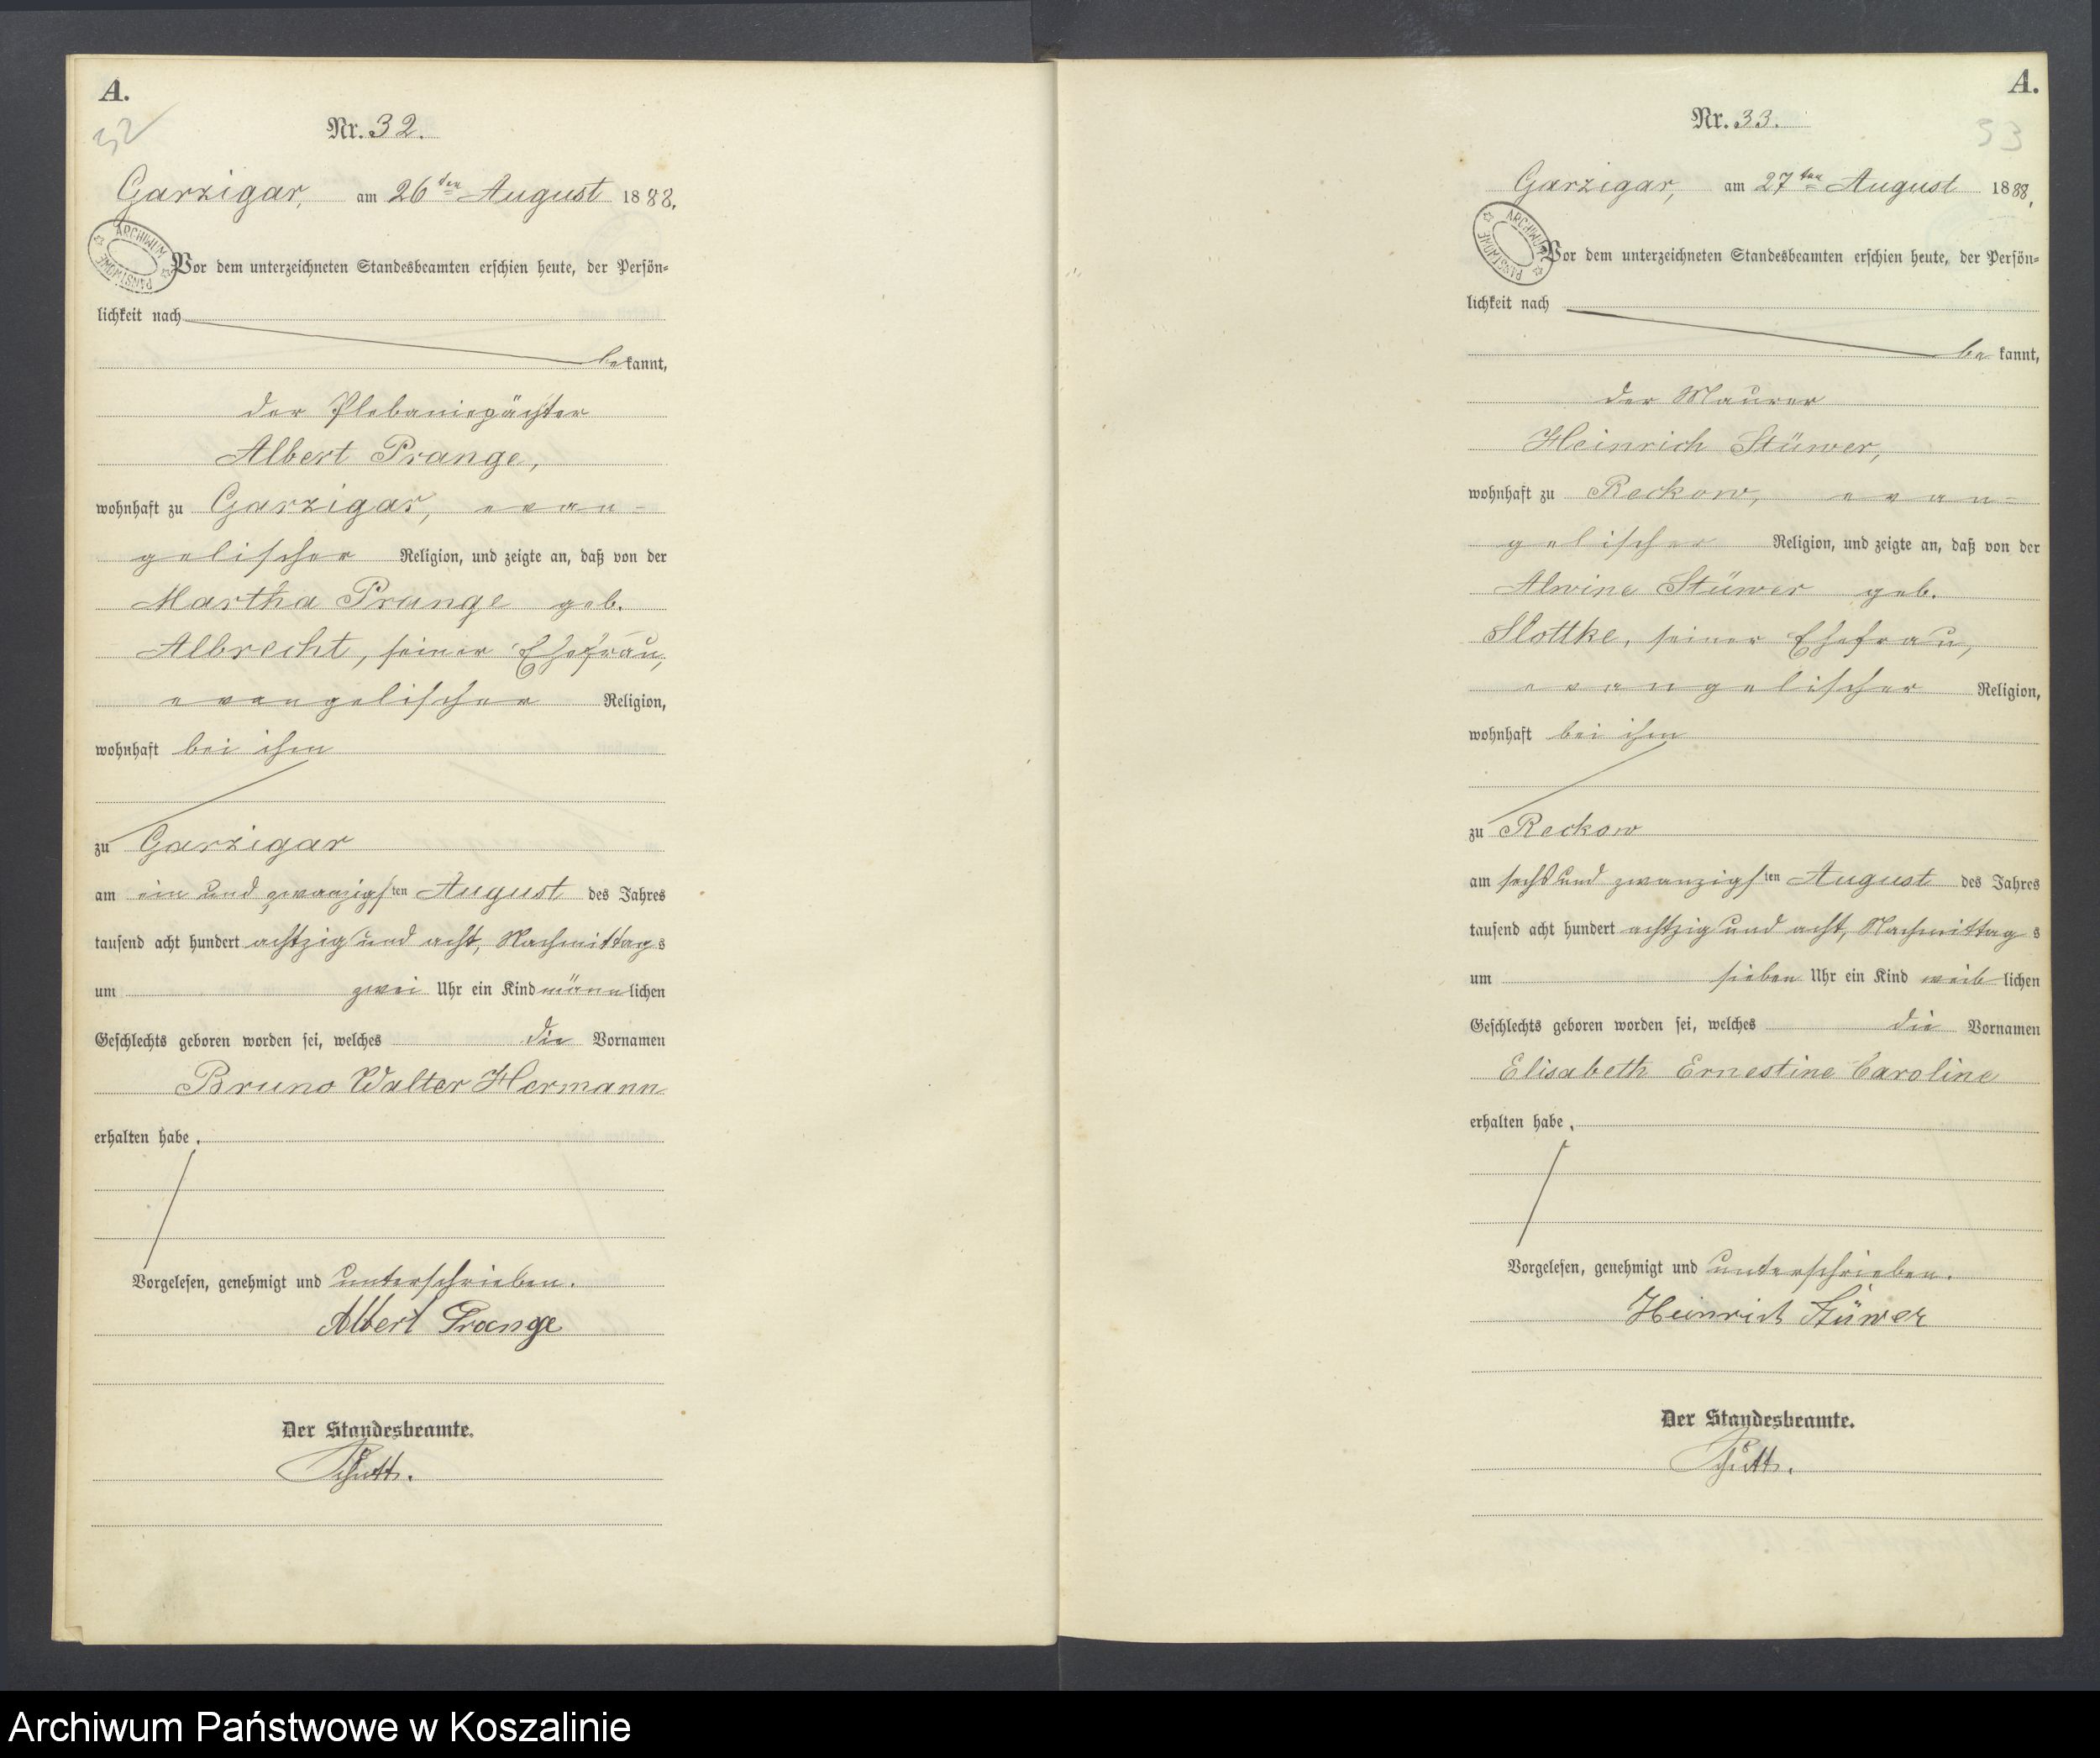 A.
32
Nr. 32.
Garzigar, am 26ten August 1888.
ARCHIWUM PAŃSTWOWE
Vor dem unterzeichneten Standesbeamten erschien heute, der Persön-
lichkeit nach
bekannt,
der Plebaniepächter
Albert Prange,
wohnhaft zu Garzigar, evan-
gelischer Religion, und zeigte an, daß von der
Martha Prange geb.
Albrecht, seiner Ehefrau,
evangelischer Religion,
wohnhaft bei ihm
zu Garzigar
am ein und zwanzigsten August des Jahres
tausend acht hundert achtzig und acht, Nachmittags
um zwei Uhr ein Kind männlichen
Geschlechts geboren worden sei, welches die Vornamen
Bruno Walter Hermann
erhalten habe.
Vorgelesen, genehmigt und unterschrieben.
Albert Prange
Der Standesbeamte.
A.
33
Nr. 33.
Garzigar, am 27ten August 1888.
ARCHIWUM PAŃSTWOWE
Vor dem unterzeichneten Standesbeamten erschien heute, der Persön-
lichkeit nach
bekannt,
der Maurer
Heinrich Stüwer,
wohnhaft zu Reckow, evan-
gelischer Religion, und zeigte an, daß von der
Alwine Stüwer geb.
Slottke, seiner Ehefrau,
evangelischer Religion,
wohnhaft bei ihm
zu Reckow
am sechs und zwanzigsten August des Jahres
tausend acht hundert achtzig und acht, Nachmittags
um sieben Uhr ein Kind weiblichen
Geschlechts geboren worden sei, welches die Vornamen
Elisabeth Ernestine Caroline
erhalten habe.
Vorgelesen, genehmigt und unterschrieben.
Heinrich Stüwer
Der Standesbeamte.
Archiwum Państwowe w Koszalinie